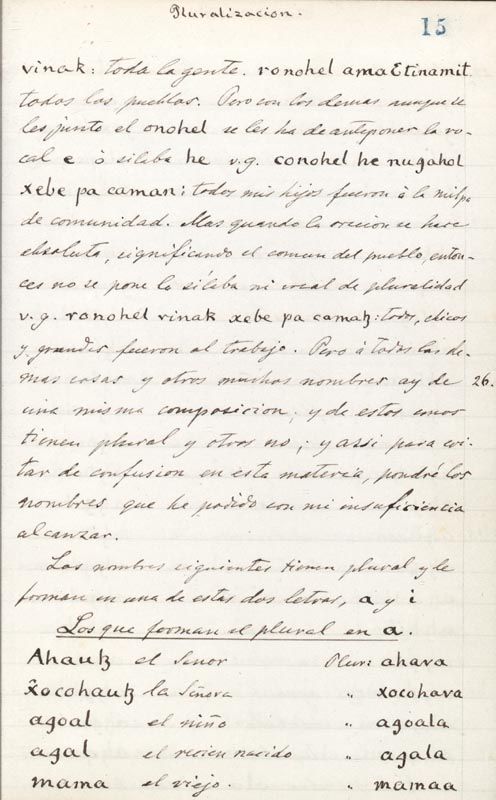 Pluralizacion.
15
vinak: toda la gente. ronohel amaƐtinamit.
todos los pueblos. Pero con los demas aunque se
les junte el onohel se les ha de anteponer la vo-
cal e ò silaba he v.g. conohel he nugahol
xebe pa caman: todos mis hijos fueron à la milpa
de comunidad. Mas quando la oracion se hace
absoluta, significando el comun del pueblo, enton-
ces no se pone la sílaba ni vocal de pluralidad
v.g. ronohel vinak xebe pa camaꜩ: todos, chicos
y grandes fueron al trabajo. Pero à todas las de-
mas cosas y otros muchos nombres ay de 26.
una misma composicion; y de estos unos
tienen plural y otros no; y assi para evi-
tar de confusion en esta materia, pondré los
nombres que he podido con mi insuficiencia
alcanzar.
Los nombres siguientes tienen plural y le
forman en una de estas dos letras, a y i
Los que forman el plural en a.
Ahauꜩ el Senor Plur: ahava
x̂ocohauꜩ la Señora " xocohava
agoal el niño " agoala
agal el recien nacido " agala
mama el viejo. " mamaa